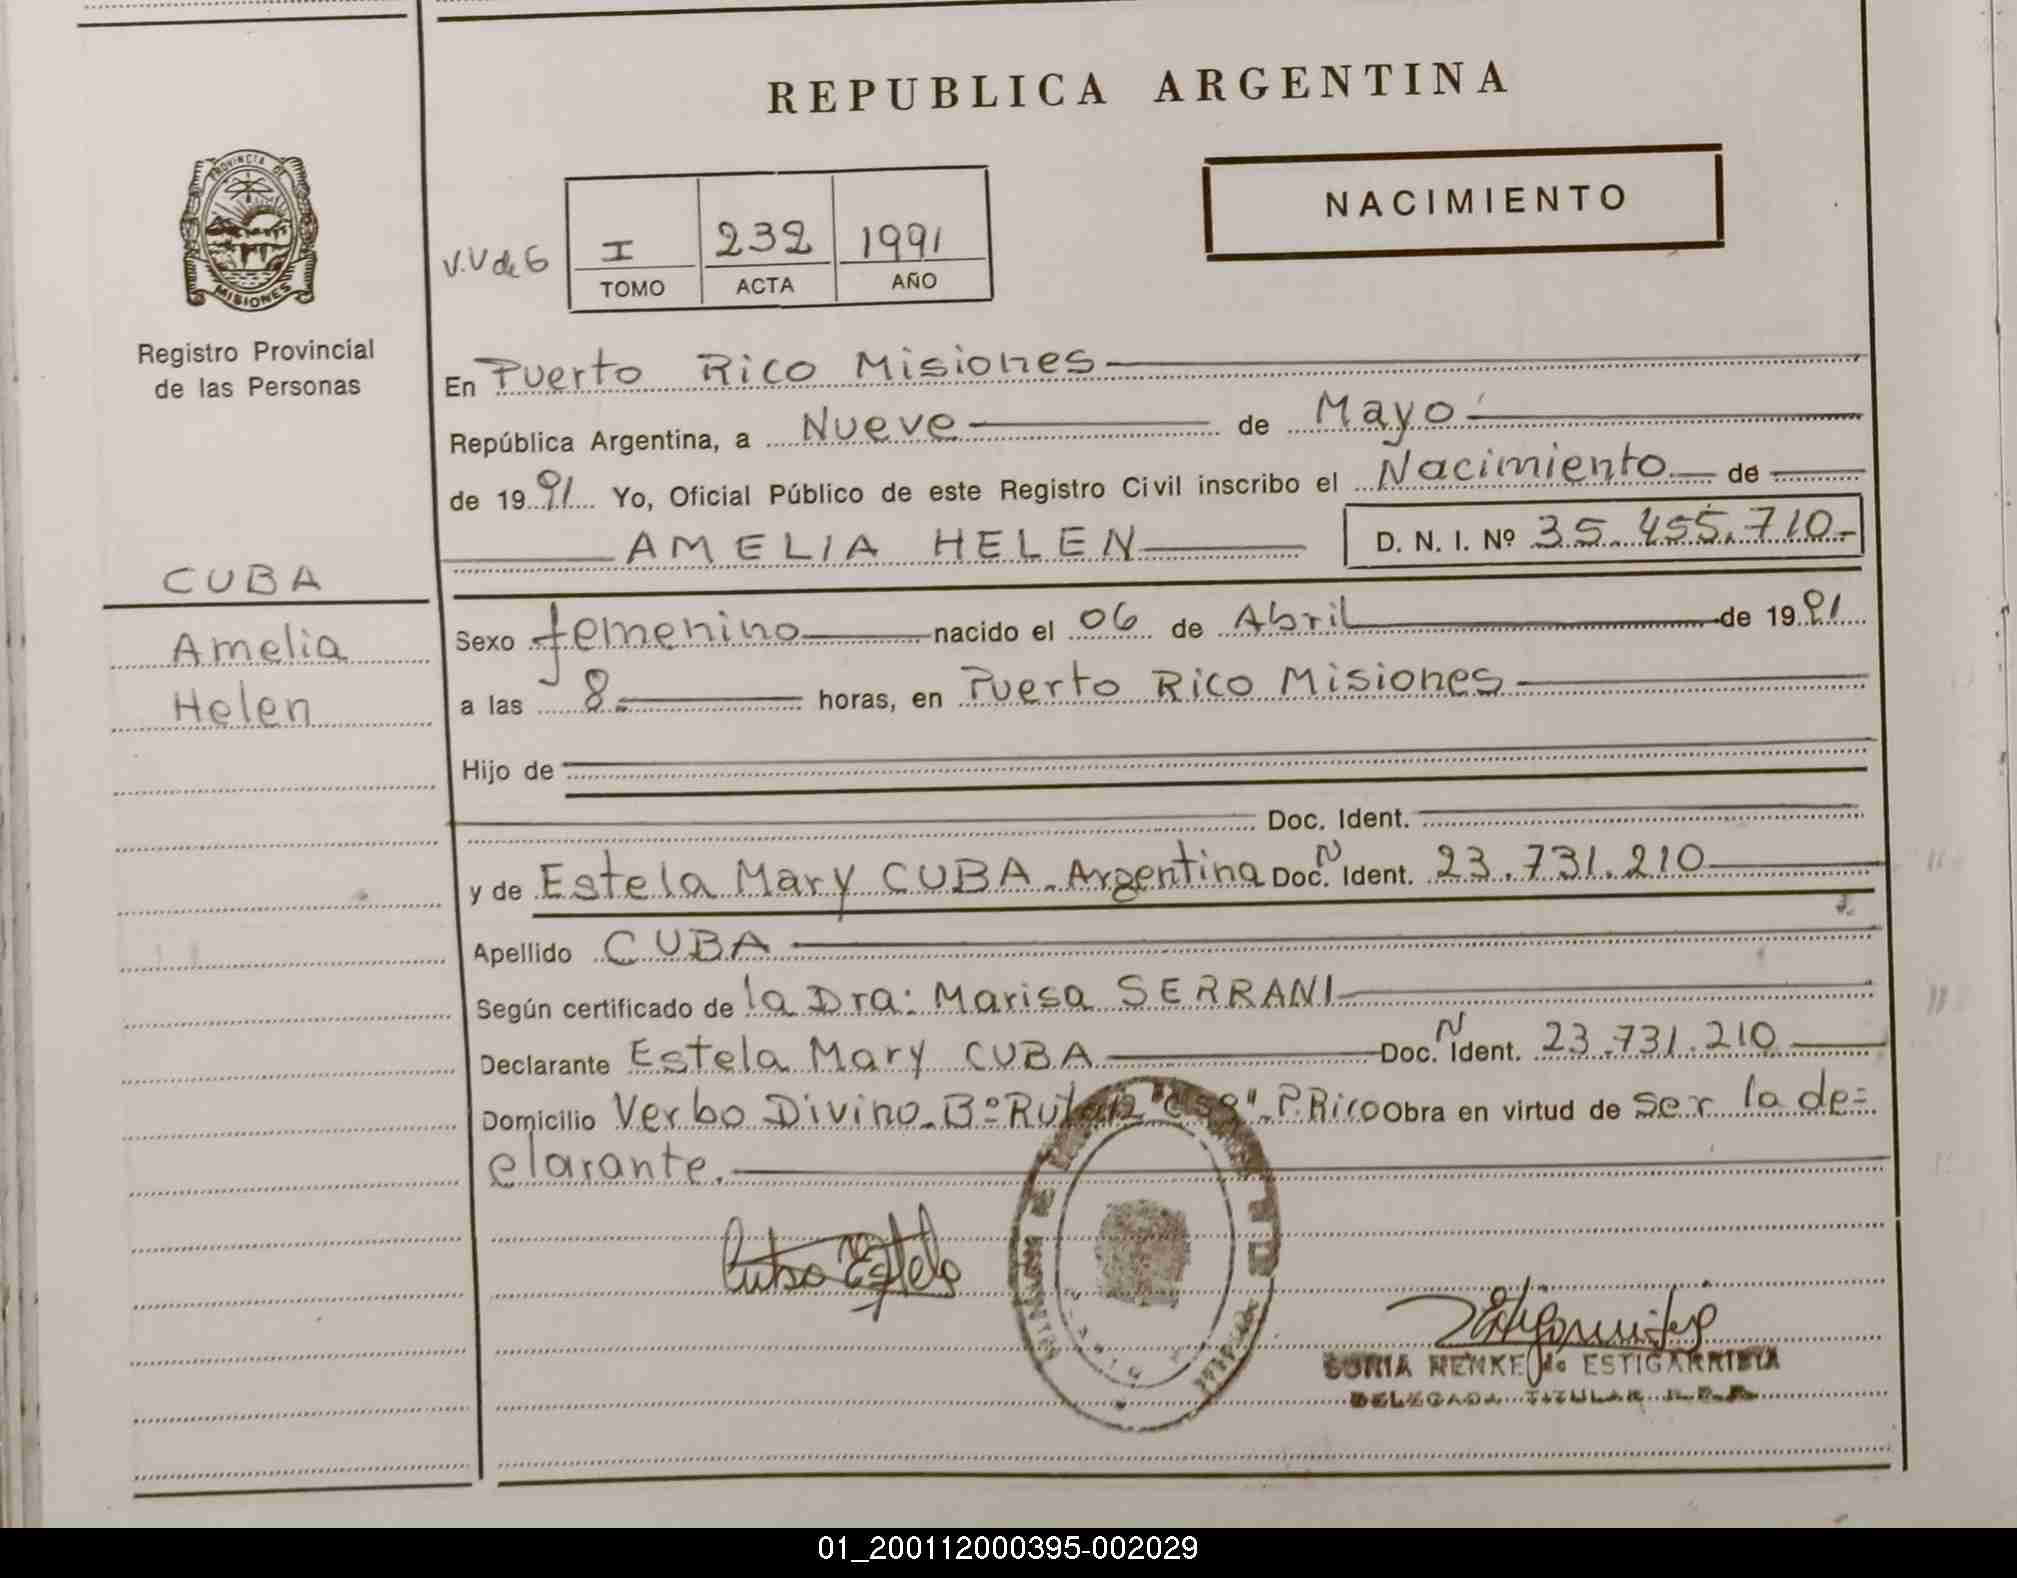 REPUBLICA ARGENTINA
PROVINCIA DE
MISIONES
Registro Provincial
de las Personas
NACIMIENTO
V.V de G
I 232 1991
TOMO ACTA AÑO
En Puerto Rico Misiones
República Argentina, a Nueve de Mayo
de 1991 Yo, Oficial Público de este Registro Civil inscribo el Nacimiento de
AMELIA HELEN D. N. I. Nº 35.455.710.-
CUBA
Amelia
Helen
Sexo femenino nacido el 06 de Abril de 1991
a las 8.- horas, en Puerto Rico Misiones
Hijo de
Doc. Ident.
y de Estela Mary CUBA. Argentina Doc. N Ident. 23.731.210
Apellido CUBA
Según certificado de la Dra: Marisa SERRANI
Declarante Estela Mary CUBA Doc. N Ident. 23.731.210
Domicilio Verbo Divino. Bº Ruta 12 P.Rico Obra en virtud de ser la de=
clarante.
Cuba Estela
SONIA HENKE de ESTIGARRIBIA
DELEGADA TITULAR R.P.P.
01_200112000395-002029